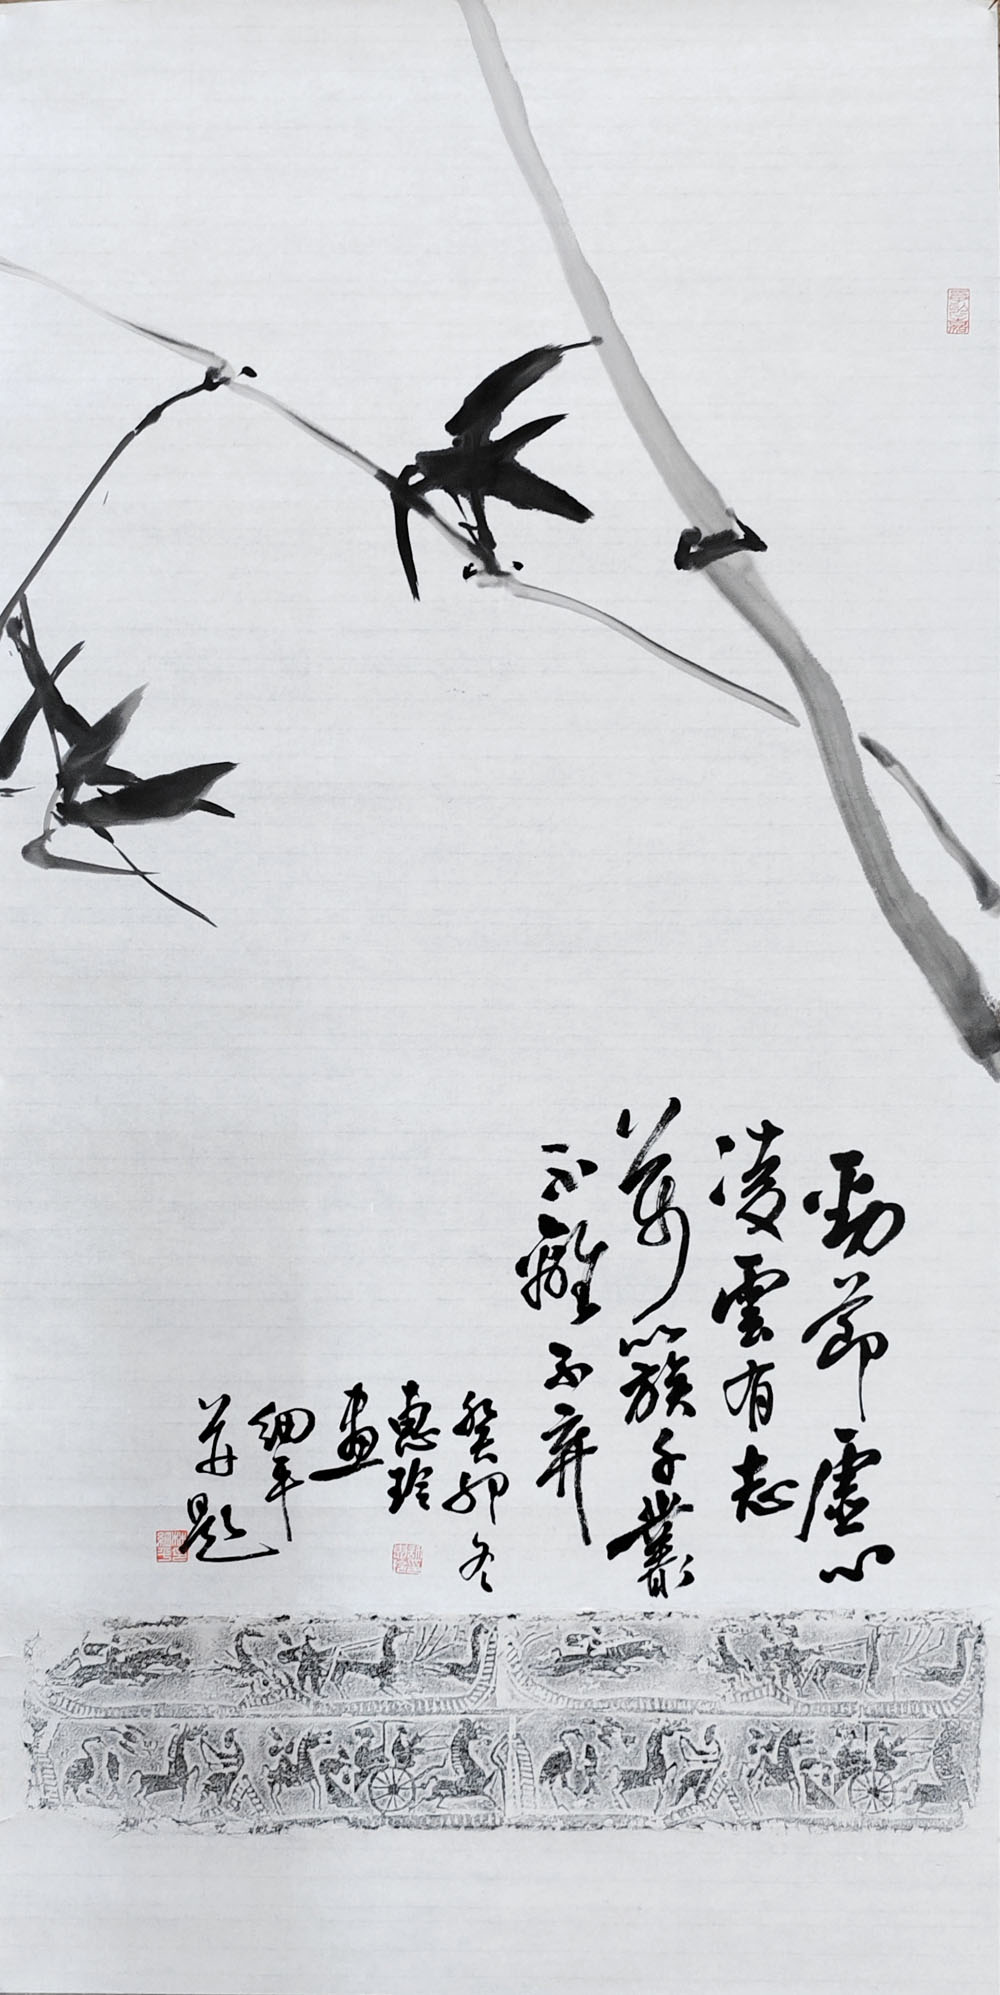 勁節虛心
凌雲有志
萬簇千叢
不離不棄
癸卯冬
惠玲
畫
細平
並題